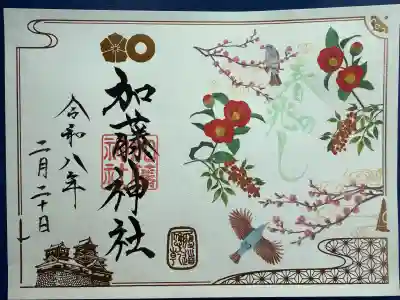 春兆し
加藤神社
令和八年
二月二十日